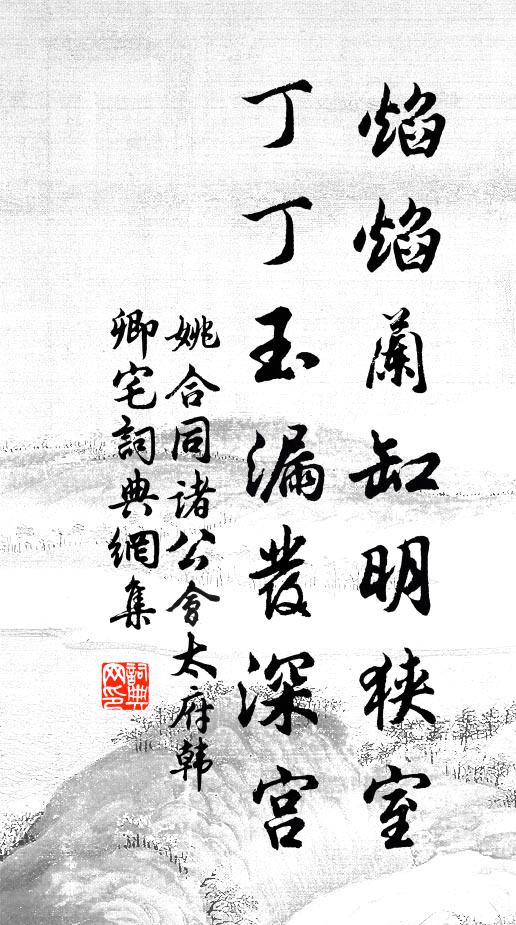 焰焰蘭缸明狹室
丁丁玉漏發深宮
姚合同諸公會太府韩
卿宅詞典網集
詞典网印